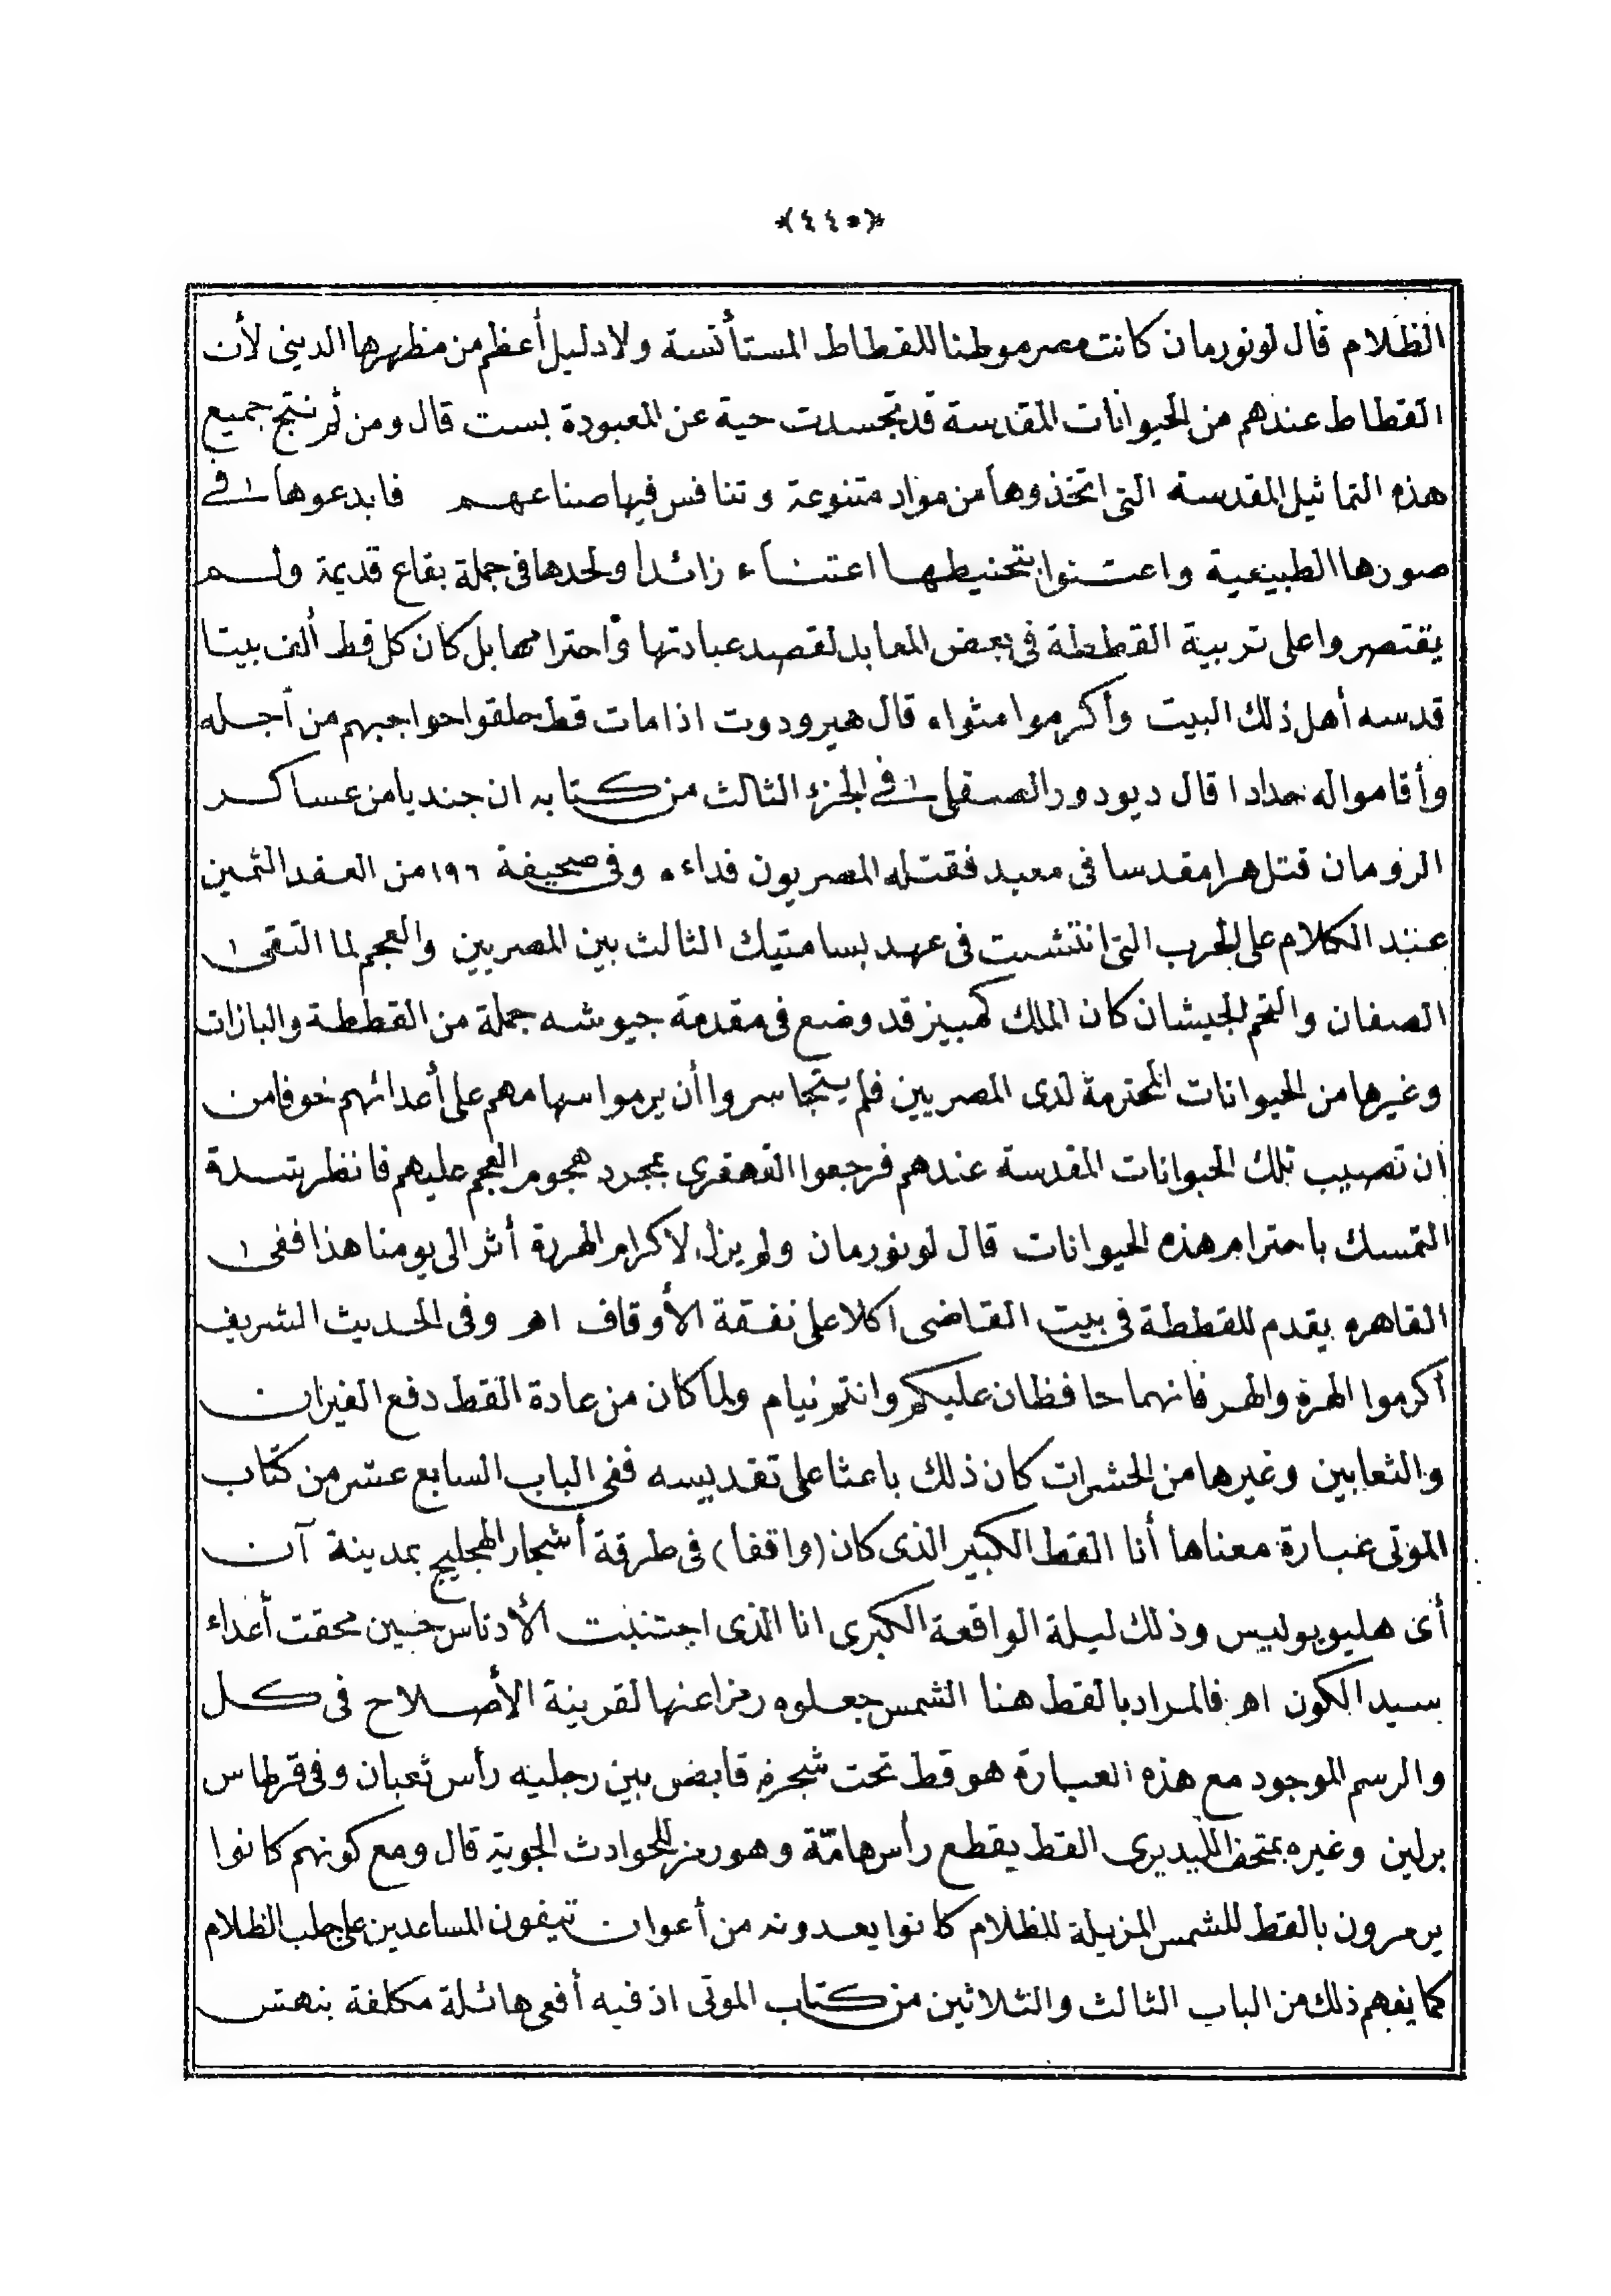 ﴿٤٤٥﴾
الظلام قال لونورمان كانت مصر موطنا للقطاط المستأنسة ولا دليل أعظم من مظهرها الدينى لأن
القطاط عندهم من الحيوانات المقدسة قد تجسدت حية عن المعبودة بست قال ومن ثم نتج جميع
هذه التماثيل المقدسة التى اتخذوها من مواد متنوعة وتنافس فيها صناعهم فابدعوها فى
صورها الطبيعية واعتنوا بتحنيطها اعتناء زائدا ولحدها فى جملة بقاع قديمة ولم
يقتصروا على تربية القططة فى بعض المعابد لقصد عبادتها واحترامها بل كان كل قط ألف بيتا
قدسه أهل ذلك البيت وأكرموا مثواه قال هيرودوت اذا مات قط حلقوا حواجبهم من أجله
وأقاموا له حدادا قال ديودور الصقلى فى الجزء الثالث من كتابه ان جنديا من عساكر
الرومان قتل هرا مقدسا فى معبد فقتله المصريون فداءه وفى صحيفة ١٩٦ من العقد الثمين
عند الكلام على الحرب التى انتشبت فى عهد بسامتيك الثالث بين المصريين والعجم لما التقى
الصفان والتحم الجيشان كان الملك كمبيز قد وضع فى مقدمة جيوشه جملة من القططة والبازات
وغيرها من الحيوانات المحترمة لدى المصريين فلم يتجاسروا أن يرموا سهامهم على أعدائهم خوفا من
أن تصيب تلك الحيوانات المقدسة عندهم فرجعوا القهقرى بمجرد هجوم العجم عليهم فانظر شدة
التمسك باحترام هذه الحيوانات قال لونورمان ولم يزل لاكرام الهررة أثر الى يومنا هذا ففى
القاهره يقدم للقططة فى بيت القاضى اكلا على نفقة الأوقاف اهر وفى الحديث الشريف
أكرموا الهرة والهر فانهما حافظان عليكم وانتم نيام ولما كان من عادة القط دفع الفيران
والثعابين وغيرها من الحشرات كان ذلك باعثا على تقديسه ففى الباب السابع عشر من كتاب
الموتى عبارة معناها أنا القط الكبير الذى كان (واقفا) فى طرقة أشجار الهجليج بمدينة آن
أى هليوبوليس وذلك ليلة الواقعة الكبرى انا الذى اجتنبت الأدناس حين محقت أعداء
سيد الكون اهر فالمراد بالقط هنا الشمس جعلوه رمزا عنها لقرينة الأصلاح فى كل
والرسم الموجود مع هذه العبارة هو قط تحت شجرة قابض بين رجليه رأس ثعبان وفى قرطاس
برلين وغيره بمتحف الليديرى القط يقطع رأس هامّة وهو رمز للحوادث الجوية قال ومع كونهم كانوا
يرمزون بالقط للشمس المزيلة للظلام كانوا يعدونه من أعوان تيفون المساعدين على جلب الظلام
كما يفهم ذلك من الباب الثالث والثلاثين من كتاب الموتى اذ فيه أفعى هائلة مكلفة بنهش